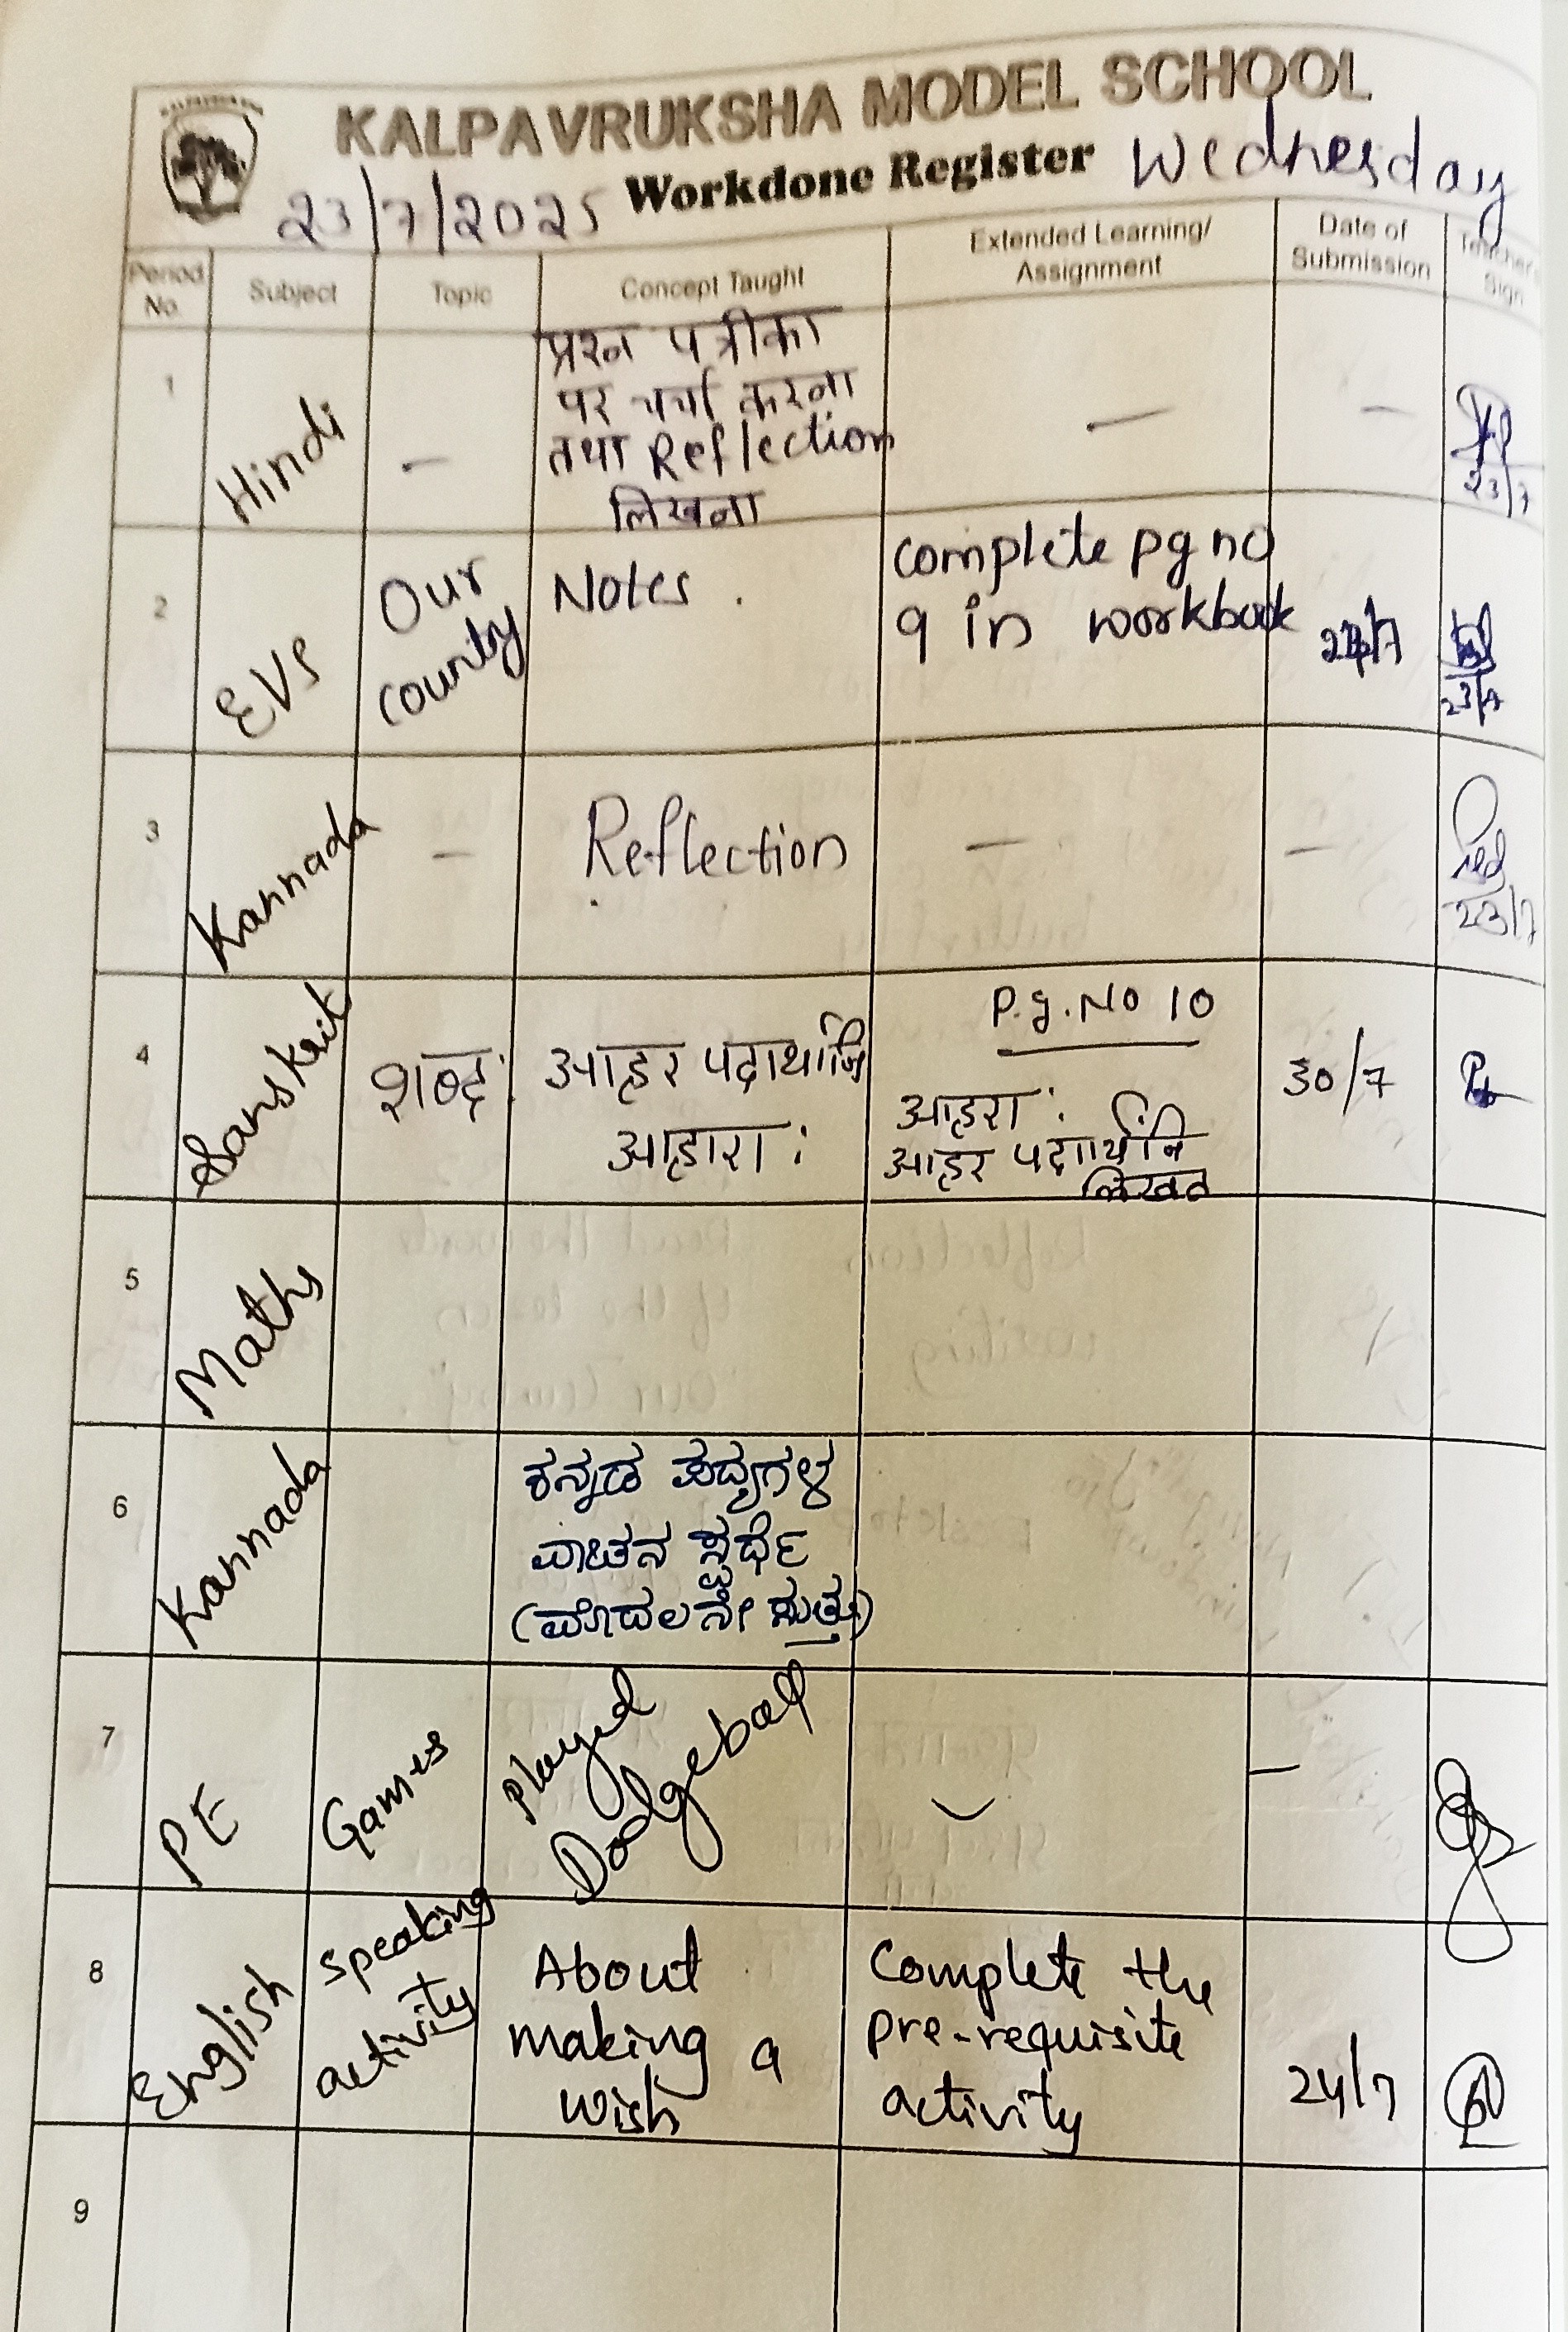 KALPAVRUKSHA MODEL SCHOOL
23/7/2025 Workdone Register Wednesday
Period No. Subject Topic Concept Taught Extended Learning/ Assignment Date of Submission Teacher's Sign
1 Hindi - प्रश्न पत्रीका — -
पर चर्चा करना
तथा Reflection
लिखना
23/7
2 EVS Our country Notes. complete pg no
9 in workbook 24/7
23/7
3 Kannada - Reflection - -
23/7
4 Sanskrit शब्दः आहर पदार्थानि P.g. No 10 30/7
आहारा: आहरा:
आहर पदार्थानि
लिखत
5 Maths
6 Kannada ಕನ್ನಡ ಪದ್ಯಗಳ
ವಾಚನ ಸ್ಪರ್ಧೆ
(ಮೊದಲನೇ ಸುತ್ತು)
7 PE Games Played - -
Dodgeball
8 English speaking activity About Complete the 24/7
making a pre-requisite
wish activity
9